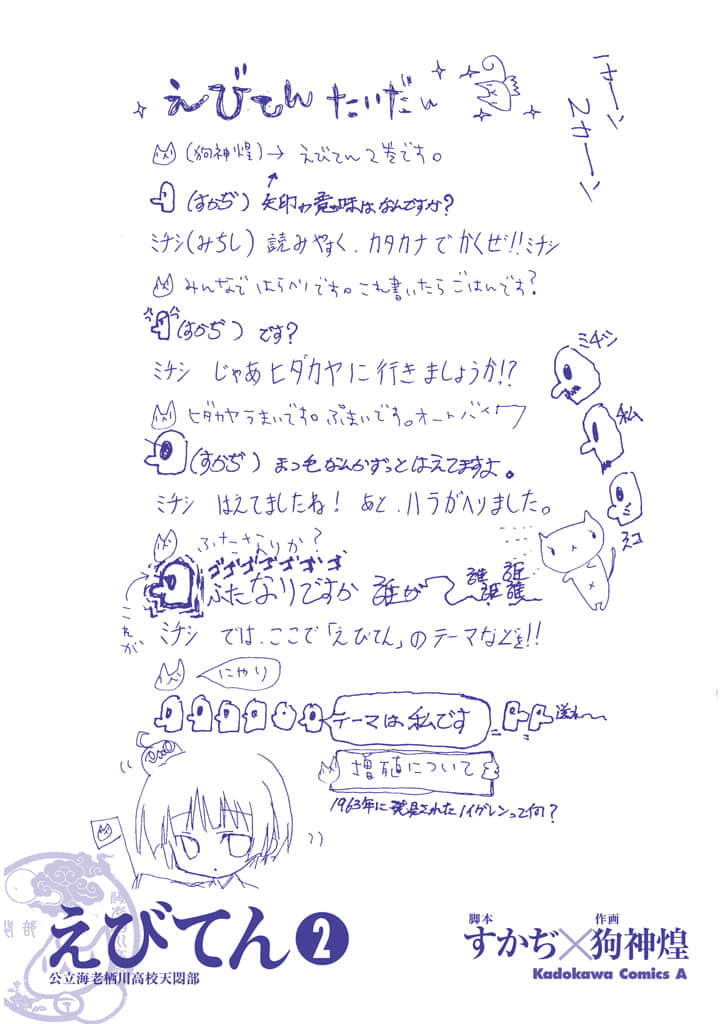 えびてん たいだん
はーい
2カーい
(狗神煌)→ えびてん2巻です。
(すかぢ) 矢印の意味はなんですか?
ミチシ(みちし) 読みやすく、カタカナでかくぜ!!ミチシ
みんなではらへりです。これ書いたらごはんです?
(すかぢ) です?
ミチシ じゃあヒダカヤに行きましょうか!?
ヒダカヤうまいです。ぷまいです。オートバイ
ミチシ
私
ネコ
(すかぢ) まつ毛なんかずっとはえてますよ。
ミチシ はえてましたね! あと、ハラがへりました。
ふたなりか?
ゴゴゴゴゴゴゴ
ふたなりですか 誰が 誰 誰 誰 誰
これが、
ミチシ では、ここで「えびてん」のテーマなどを!!
にやり
テーマは私です
増殖について
1963年に発見されたハイグレンって何?
えびてん2
公立海老栖川高校天悶部
脚本 作画
すかぢ×狗神煌
Kadokawa Comics A